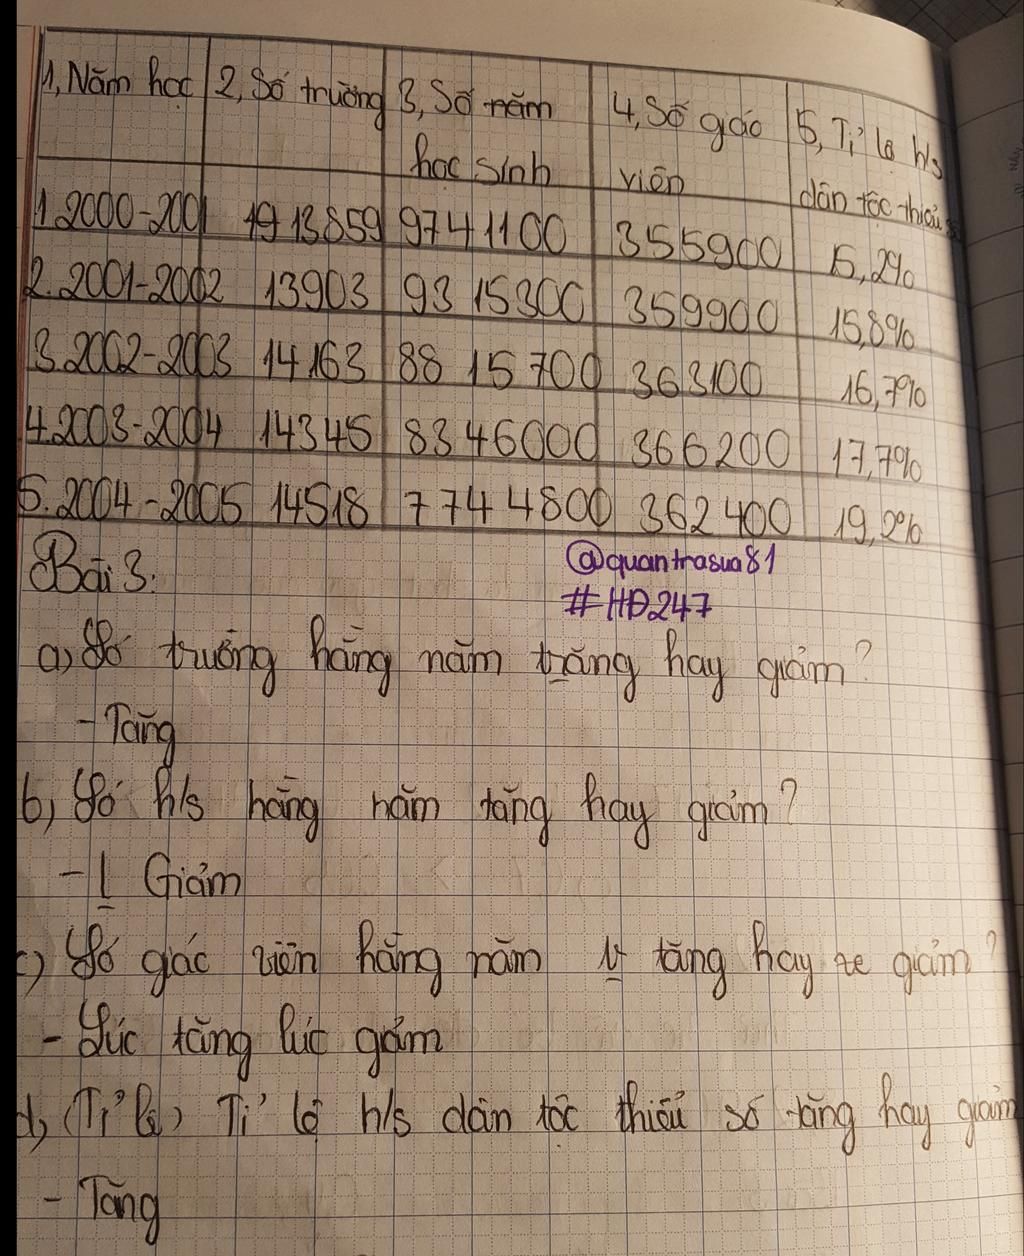 1, Năm học 2, Số trường 3, Số năm học sinh 4, Số giáo viên 5, Tỉ lệ h/s dân tộc thiểu
1.2000-2001 19 13859 9741100 355900 15,2%
2.2001-2002 13903 93 15300 359900 15,8%
3.2002-2003 14163 88 15 700 363100 16,7%
4.2003-2004 14345 8346000 366200 17,7%
5.2004-2005 14518 7 744 4800 362400 19,2%
Bài 3:
@quantrasua81
#HĐ247
a) Số trường hằng năm tăng hay giảm?
- Tăng
b, Số h/s hằng năm tăng hay giảm?
- Giảm
c) Số giác viên hằng năm tăng hay giảm?
- Lúc tăng lúc gảm
d, (Tỉ lệ) Tỉ lệ h/s dân tộc thiểu số tăng hay giảm
- Tăng